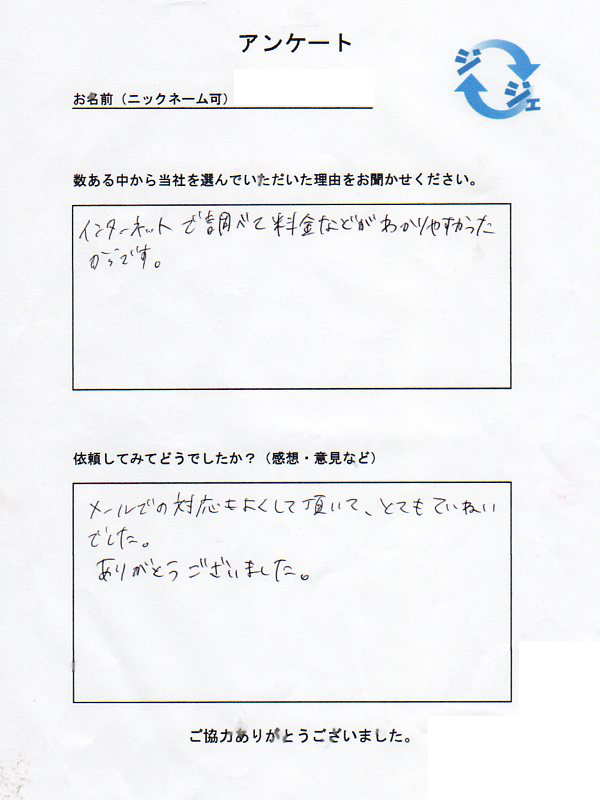 アンケート
ジジェ
お名前（ニックネーム可）
数ある中から当社を選んでいただいた理由をお聞かせください。
インターネットで調べて料金などがわかりやすかった
からです。
依頼してみてどうでしたか？（感想・意見など）
メールでの対応もよくして頂いて、とてもていねい
でした。
ありがとうございました。
ご協力ありがとうございました。